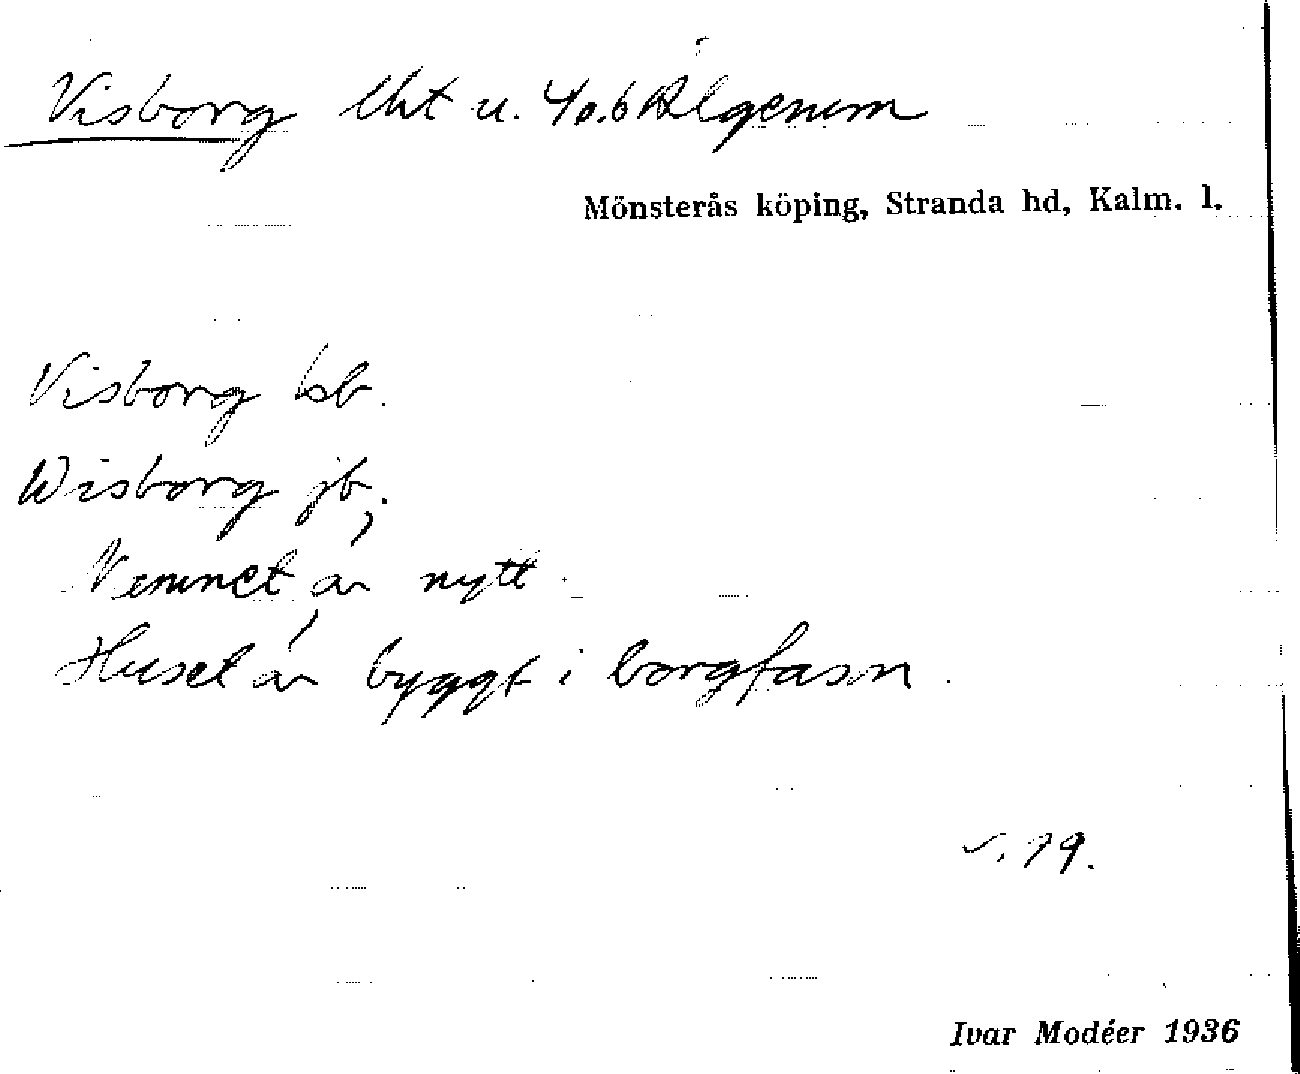 Visborg lht u. 4 o. 6 Ålgenum
Mönsterås köping, Stranda hd, Kalm. l.
Visborg kb.
Wisborg jb.
Namnet är nytt.
Huset är byggt i borgfasn.
s. 19.
Ivar Modéer 1936